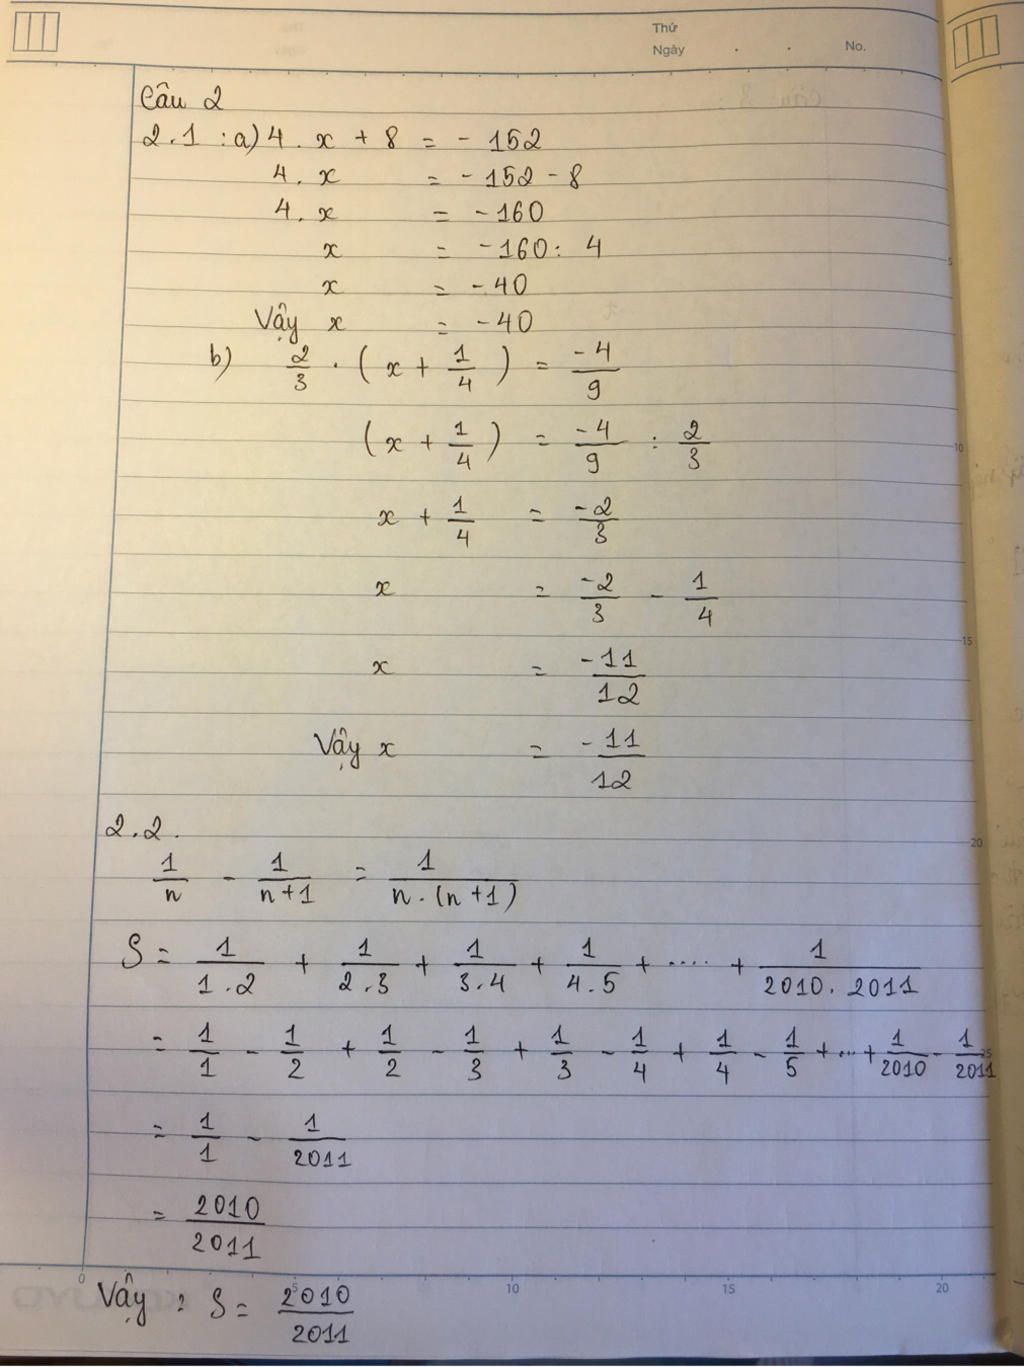 Thứ
Ngày . . No.
Câu 2
2.1 : a) 4 . x + 8 = - 152
4 . x = - 152 - 8
4 . x = - 160
x = - 160 : 4
x = - 40
Vậy x = - 40
b) 2/3 . ( x + 1/4 ) = -4/9
( x + 1/4 ) = -4/9 : 2/3
x + 1/4 = -2/3
x = -2/3 - 1/4
x = -11/12
Vậy x = -11/12
2.2.
1/n - 1/n+1 = 1/n.(n+1)
S = 1/1.2 + 1/2.3 + 1/3.4 + 1/4.5 + .... + 1/2010.2011
= 1/1 - 1/2 + 1/2 - 1/3 + 1/3 - 1/4 + 1/4 - 1/5 + ... + 1/2010 - 1/2011
= 1/1 - 1/2011
= 2010/2011
0 5 10 15 20
Vậy : S = 2010/2011